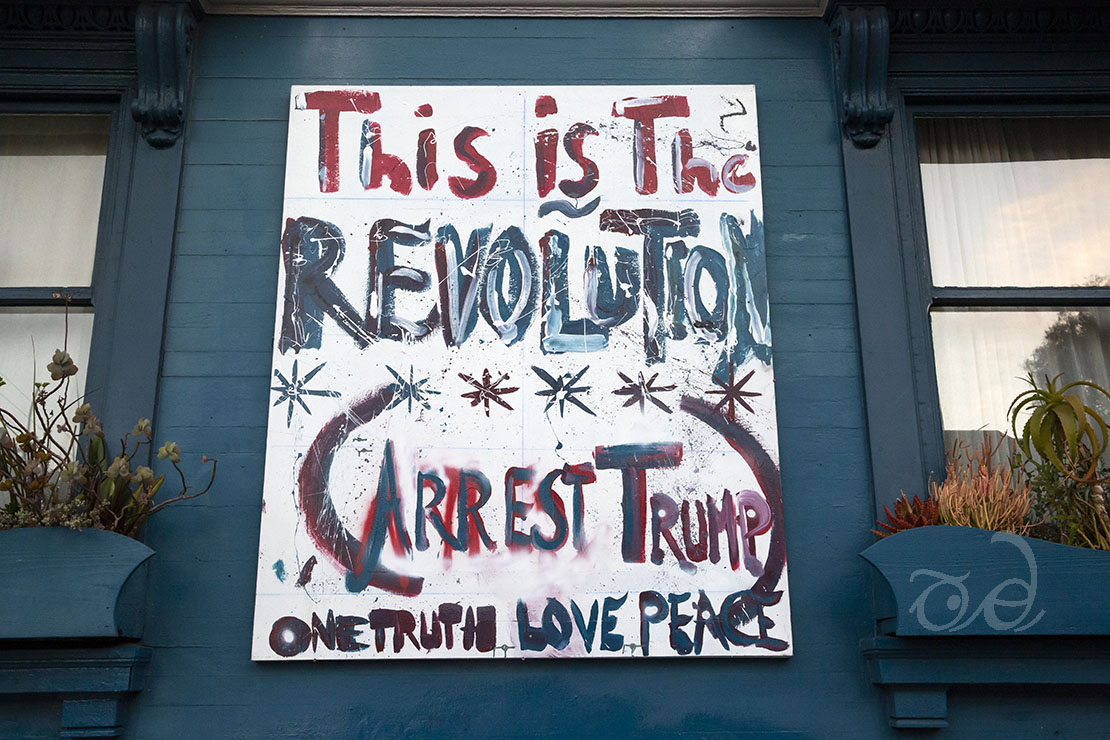 This is The
REVOLUTION
(ARREST TRUMP)
ONE TRUTH LOVE PEACE